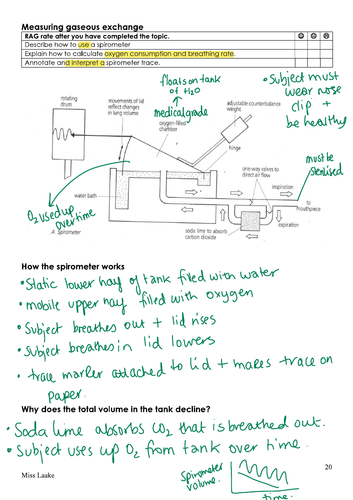 Measuring gaseous exchange
RAG rate after you have completed the topic. ☹ 😐 ☺
Describe how to use a spirometer
Explain how to calculate oxygen consumption and breathing rate.
Annotate and interpret a spirometer trace.
floats on tank
of H2O
• Subject must
wear nose
clip +
be healthy
rotating
drum
movements of lid
reflect changes
in lung volume
medical grade
oxygen-filled
chamber
adjustable counterbalance
weight
hinge
must be
sterilised
one-way valves to
direct air flow
inspiration
water bath
to
mouthpiece
O2 used up
over time
expiration
A Spirometer
soda lime to absorb
carbon dioxide
How the spirometer works
• Static lower half of tank filled with water
• mobile upper half filled with oxygen
• Subject breathes out + lid rises
• Subject breathes in lid lowers
• trace marker attached to lid + makes trace on
paper.
Why does the total volume in the tank decline?
• Soda lime absorbs CO2 that is breathed out.
• Subject uses up O2 from tank over time.
20
Miss Laake
Spirometer
volume.
time.